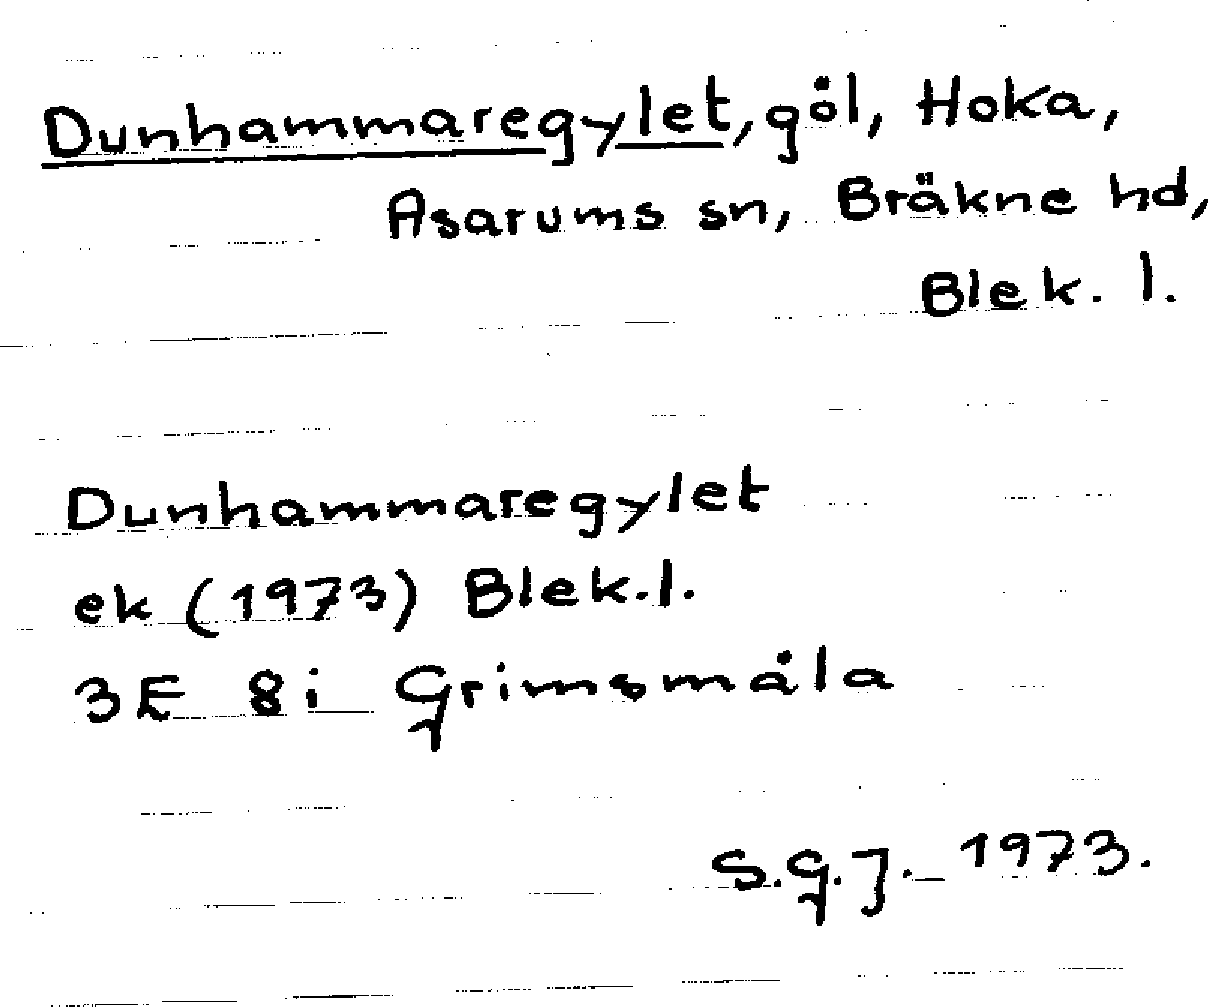 Dunhammaregylet, göl, Hoka,
Asarums sn, Bräkne hd,
Blek. l.
Dunhammaregylet
ek (1973) Blek.l.
3E 8i Grimsmåla
S.G.J. 1973.